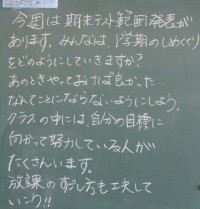 今回は期末テスト範囲発表が
あります。みんなは、1学期のしめくくり
をどのようにしていきますか？
あのときやっておけば良かった…
なんてことにならないようにしよう。
クラスの中には、自分の目標に
向かって努力している人が
たくさんいます。
放課のすごし方も工夫して
いこう!!